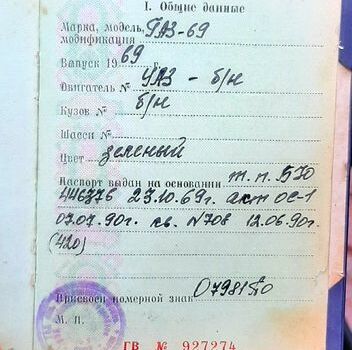 I. Общие данные
Марка, модель, ГАЗ-69
модификация
Выпуск 1969 г.
Двигатель № УАЗ - б/н
Кузов № б/н
Шасси №
Цвет зеленый
Паспорт выдан на основании т.п. БЮ
446376 23.10.69г. акт ОС-1
07.07.90г. кв. №708 12.06.90г.
(420)
Присвоен номерной знак
М. П.
ГВ № 927274